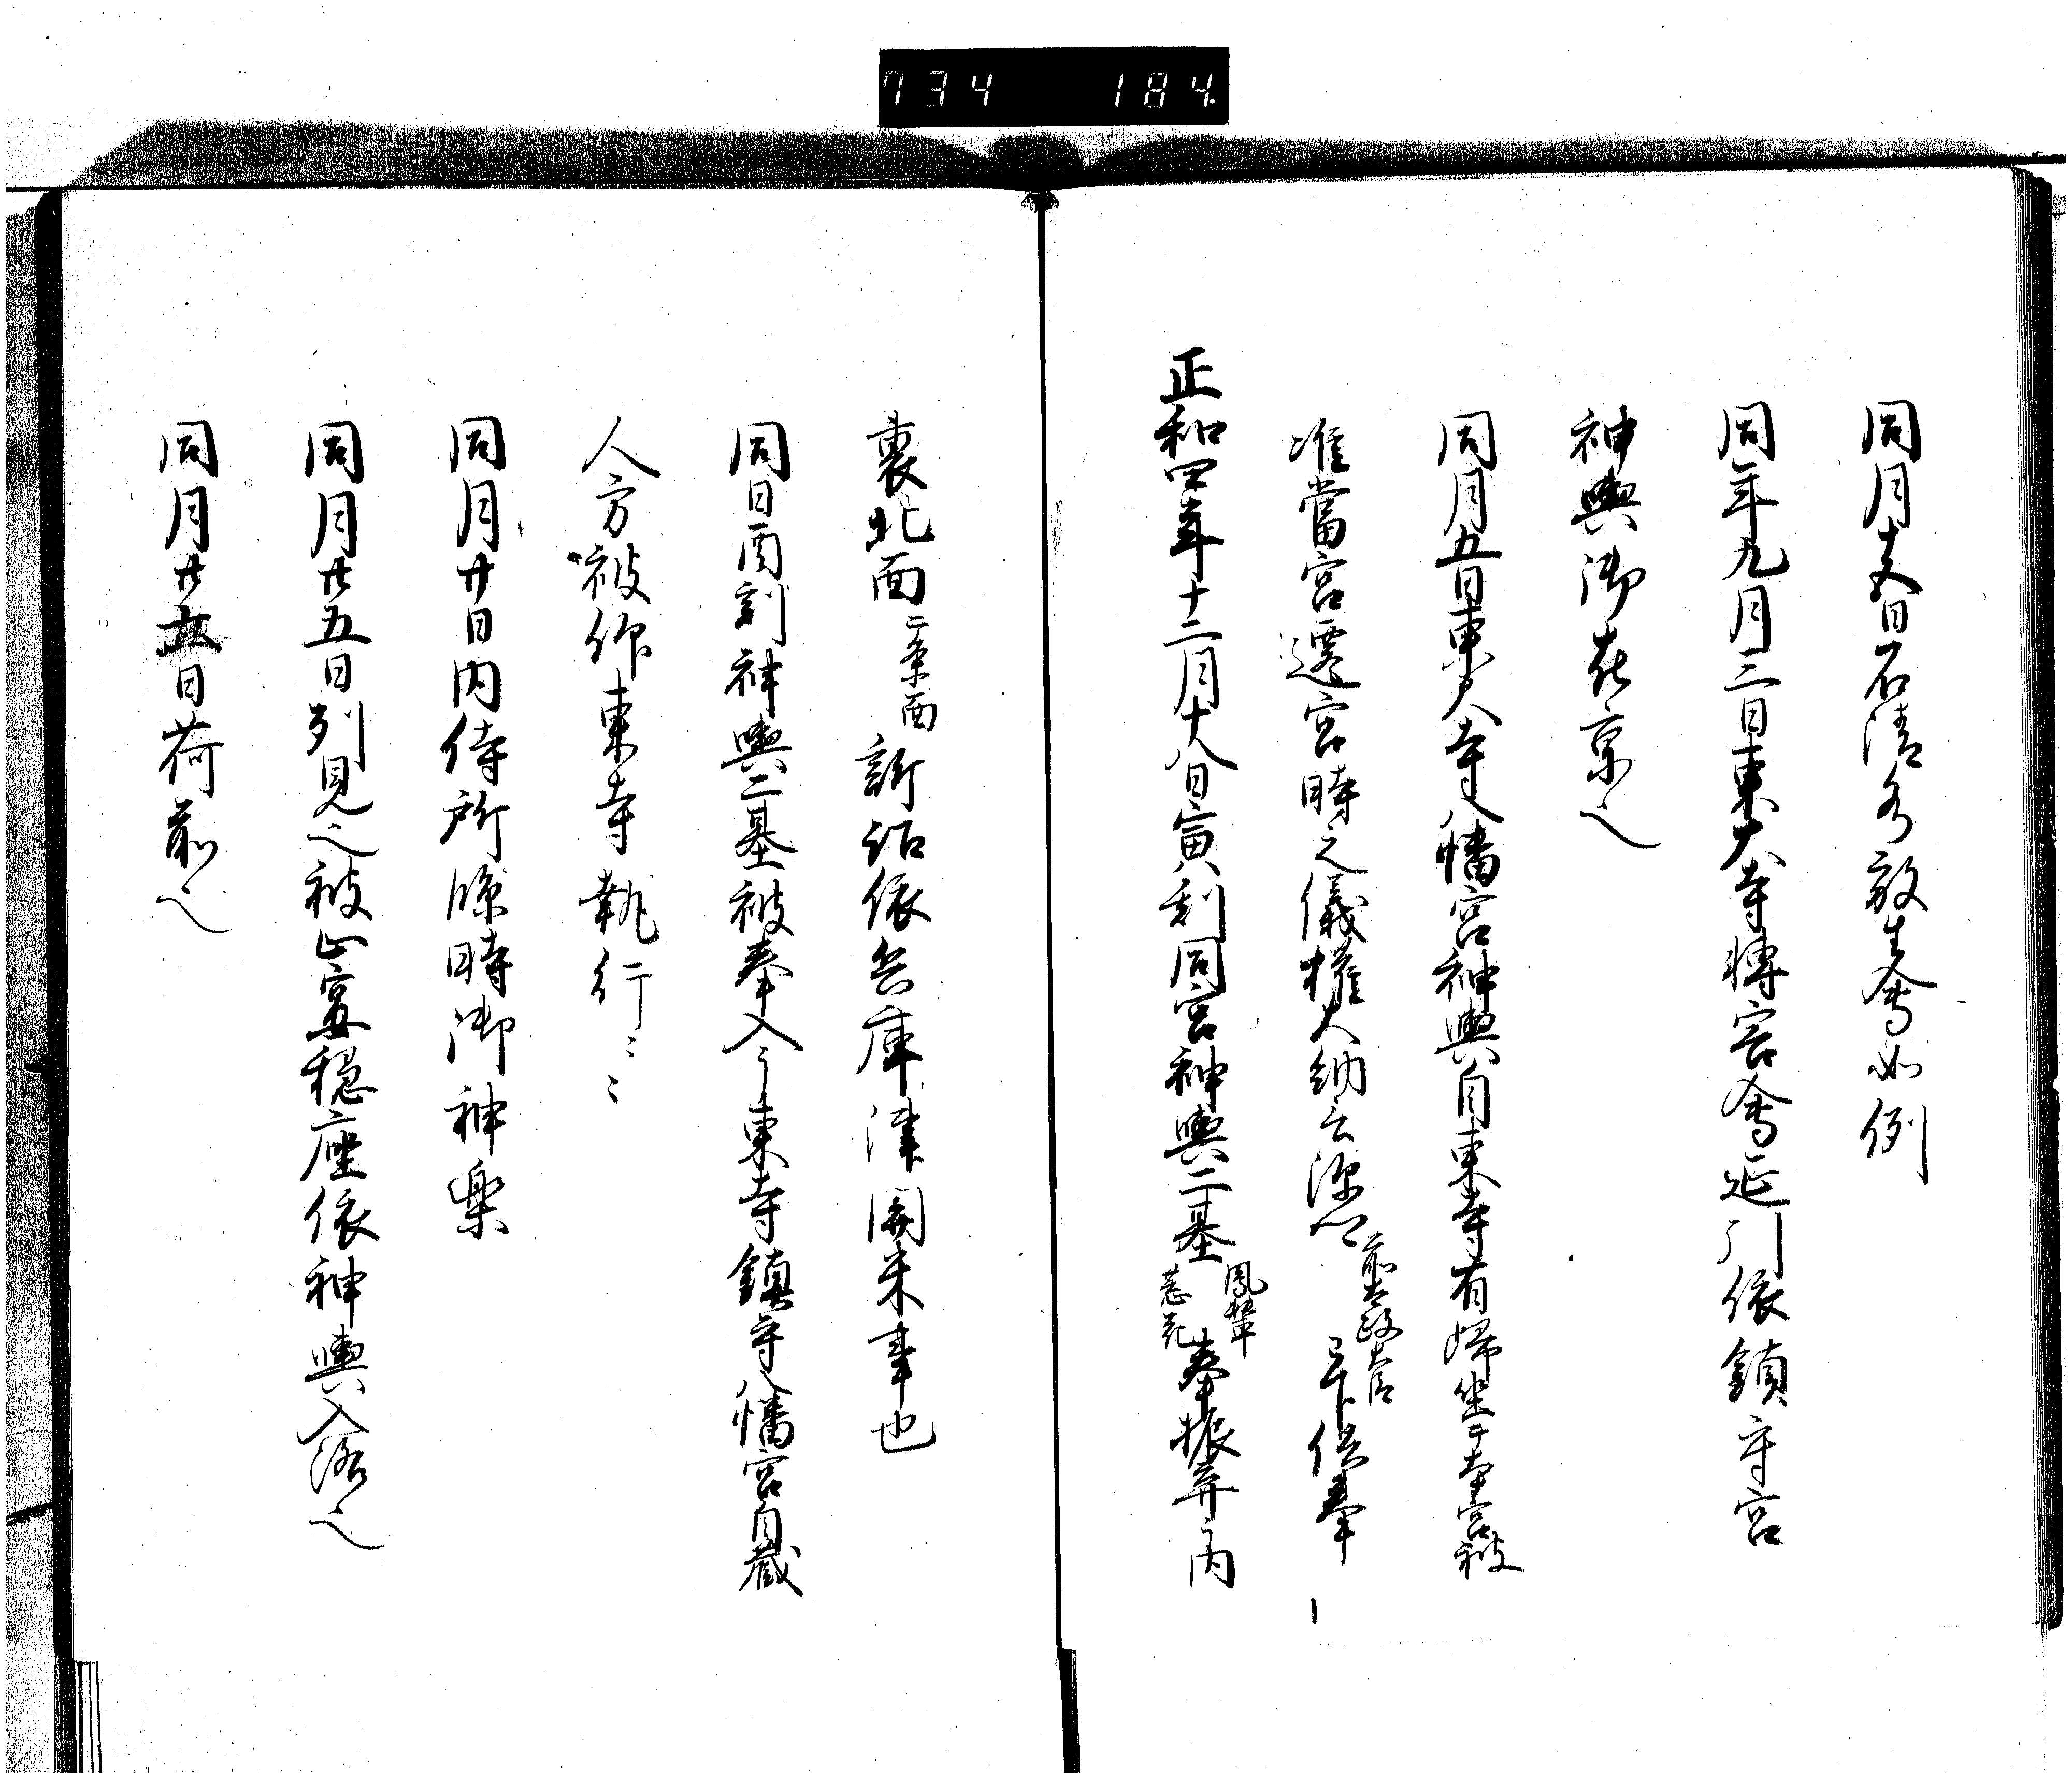 734 184
同月十五日石清水放生會如例
同年九月三日東大寺轉害會延引依鎮守宮
神輿御在京也
同月五日東大寺八幡宮神輿自東寺有歸坐于本宮被
准當宮遷宮時之儀權大納言
下供奉
正和四年十二月十八日寅刻同宮神輿二基鳳輦葱花奉振弃内
裏北面二条面訴訟依兵庫津関米事也
同日酉刻神輿二基被奉入之東寺鎮守八幡宮自蔵
人方被仰東寺執行云云
同月廿日内侍所臨時御神楽
同月廿五日列見也被止宴穏座依神輿入洛也
同月日荷前也